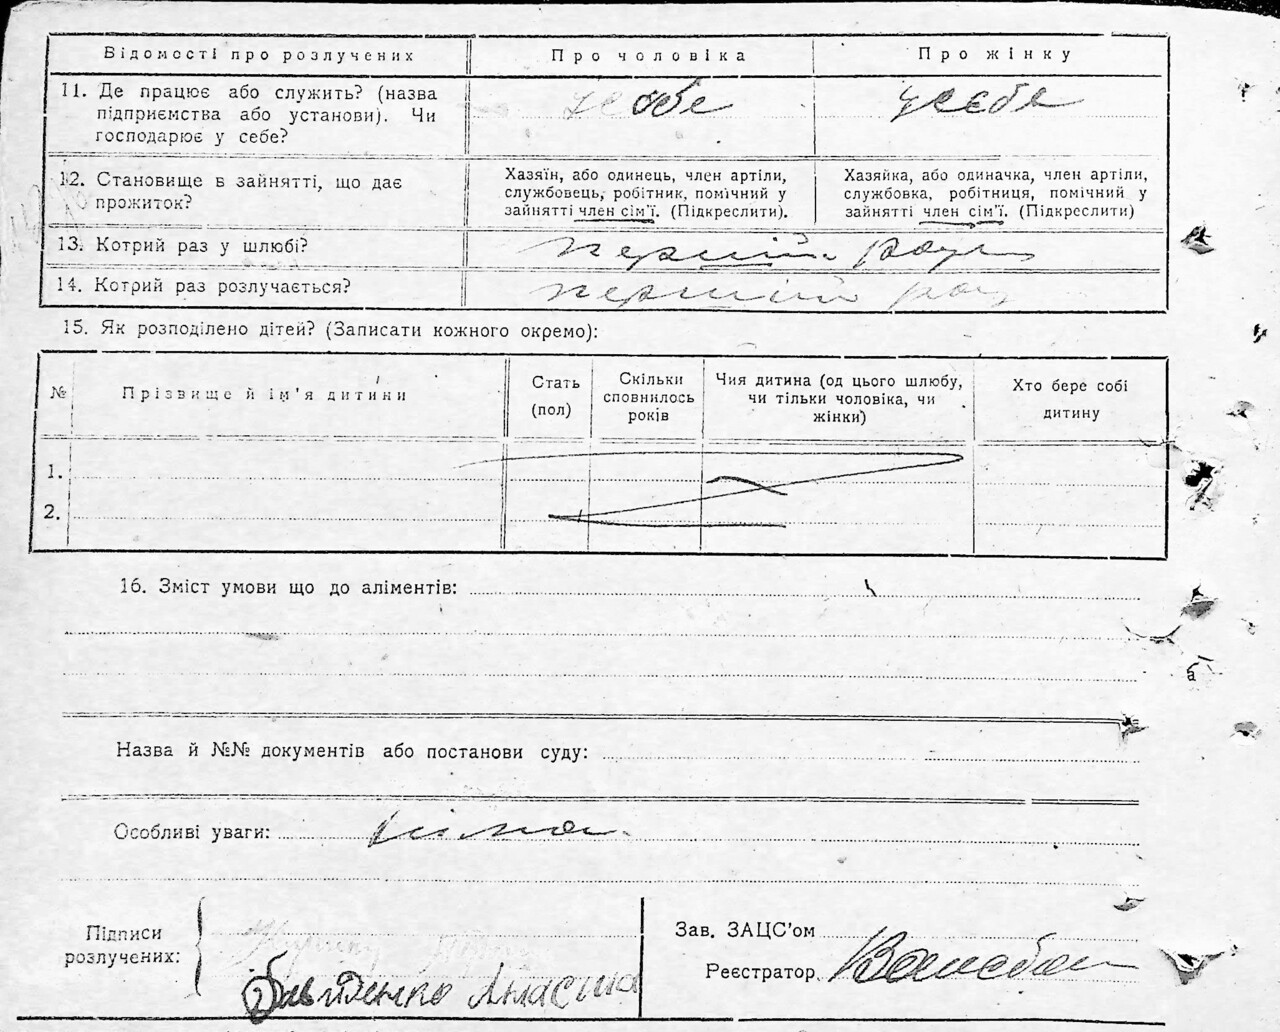 Відомості про розлучених Про чоловіка Про жінку
11. Де працює або служить? (назва
підприємства або установи). Чи
господарює у себе?
у себе у себе
12. Становище в зайнятті, що дає
прожиток?
Хазяїн, або одинець, член артіли,
службовець, робітник, помічний у
зайнятті член сім'ї. (Підкреслити).
Хазяйка, або одиначка, член артіли,
службовка, робітниця, помічний у
зайнятті член сім'ї. (Підкреслити)
13. Котрий раз у шлюбі? перший раз
14. Котрий раз розлучається? перший раз
15. Як розподілено дітей? (Записати кожного окремо):
№ Прізвище й ім'я дитини
Стать
(пол)
Скільки
сповнилось
років
Чия дитина (од цього шлюбу,
чи тільки чоловіка, чи
жінки)
Хто бере собі
дитину
1.
2.
16. Зміст умови що до аліментів:
Назва й №№ документів або постанови суду:
Особливі уваги: нима
Підписи
розлучених:
Давиденко
Зав. ЗАЦС'ом
Реєстратор